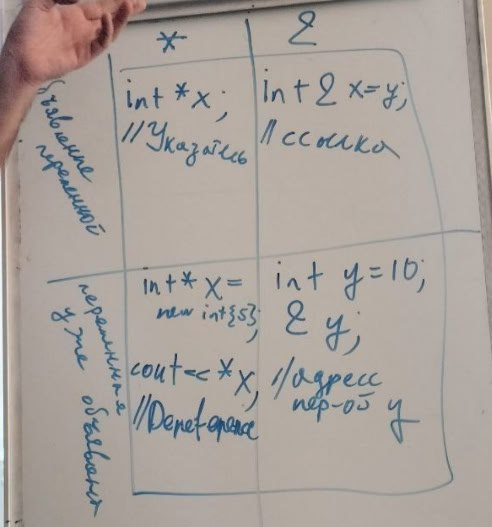 * &
Объявление
переменной
int *x;
//Указатель
int & x=y;
//ссылка
переменная
уже объявлена
int* x =
new int{5};
cout << *x;
//Dereference
int y = 10;
& y;
//адресс
пер-ой y